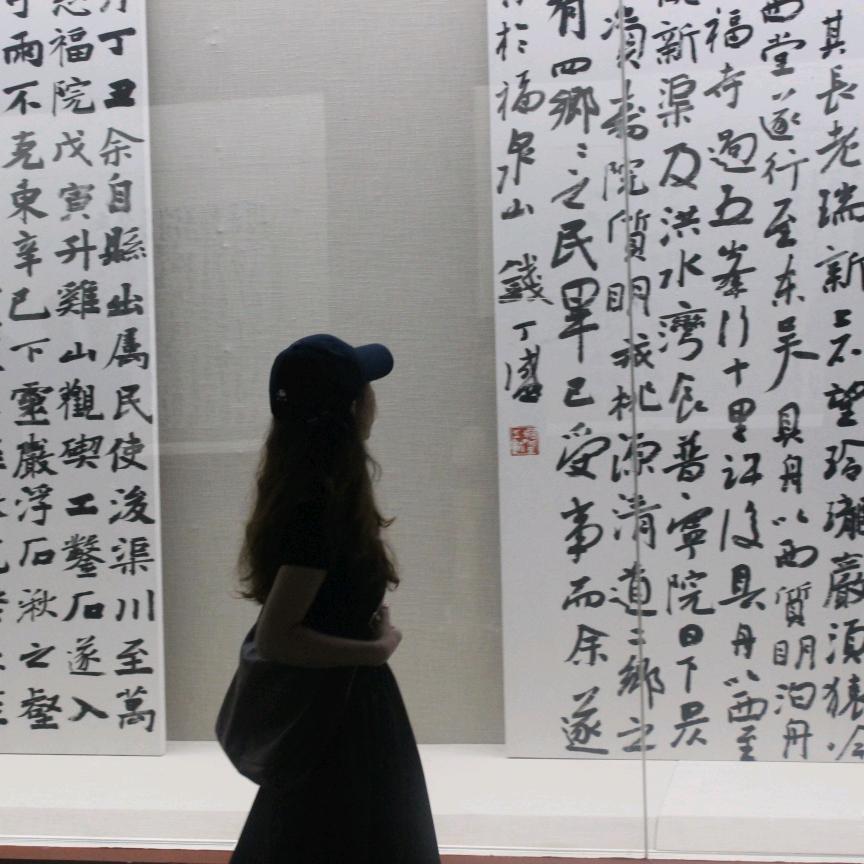 其長老瑞新上石望玲瓏巖須猿吟
西堂遂行至东吴具舟以西質明泊舟
福寺過五峯行十里許復具舟以西至
新渠及洪水灣食普寧院日下昃
資壽院質明戒桃源清道二鄉之
有四鄉〻之民畢已受事而余遂
於福泉山 錢丁盛
丁丑余自縣出属民使浚渠川至萬
慈福院戊寅升雞山觀碶工鑿石遂入
雨不克東辛巳下靈巖浮石湫之壑